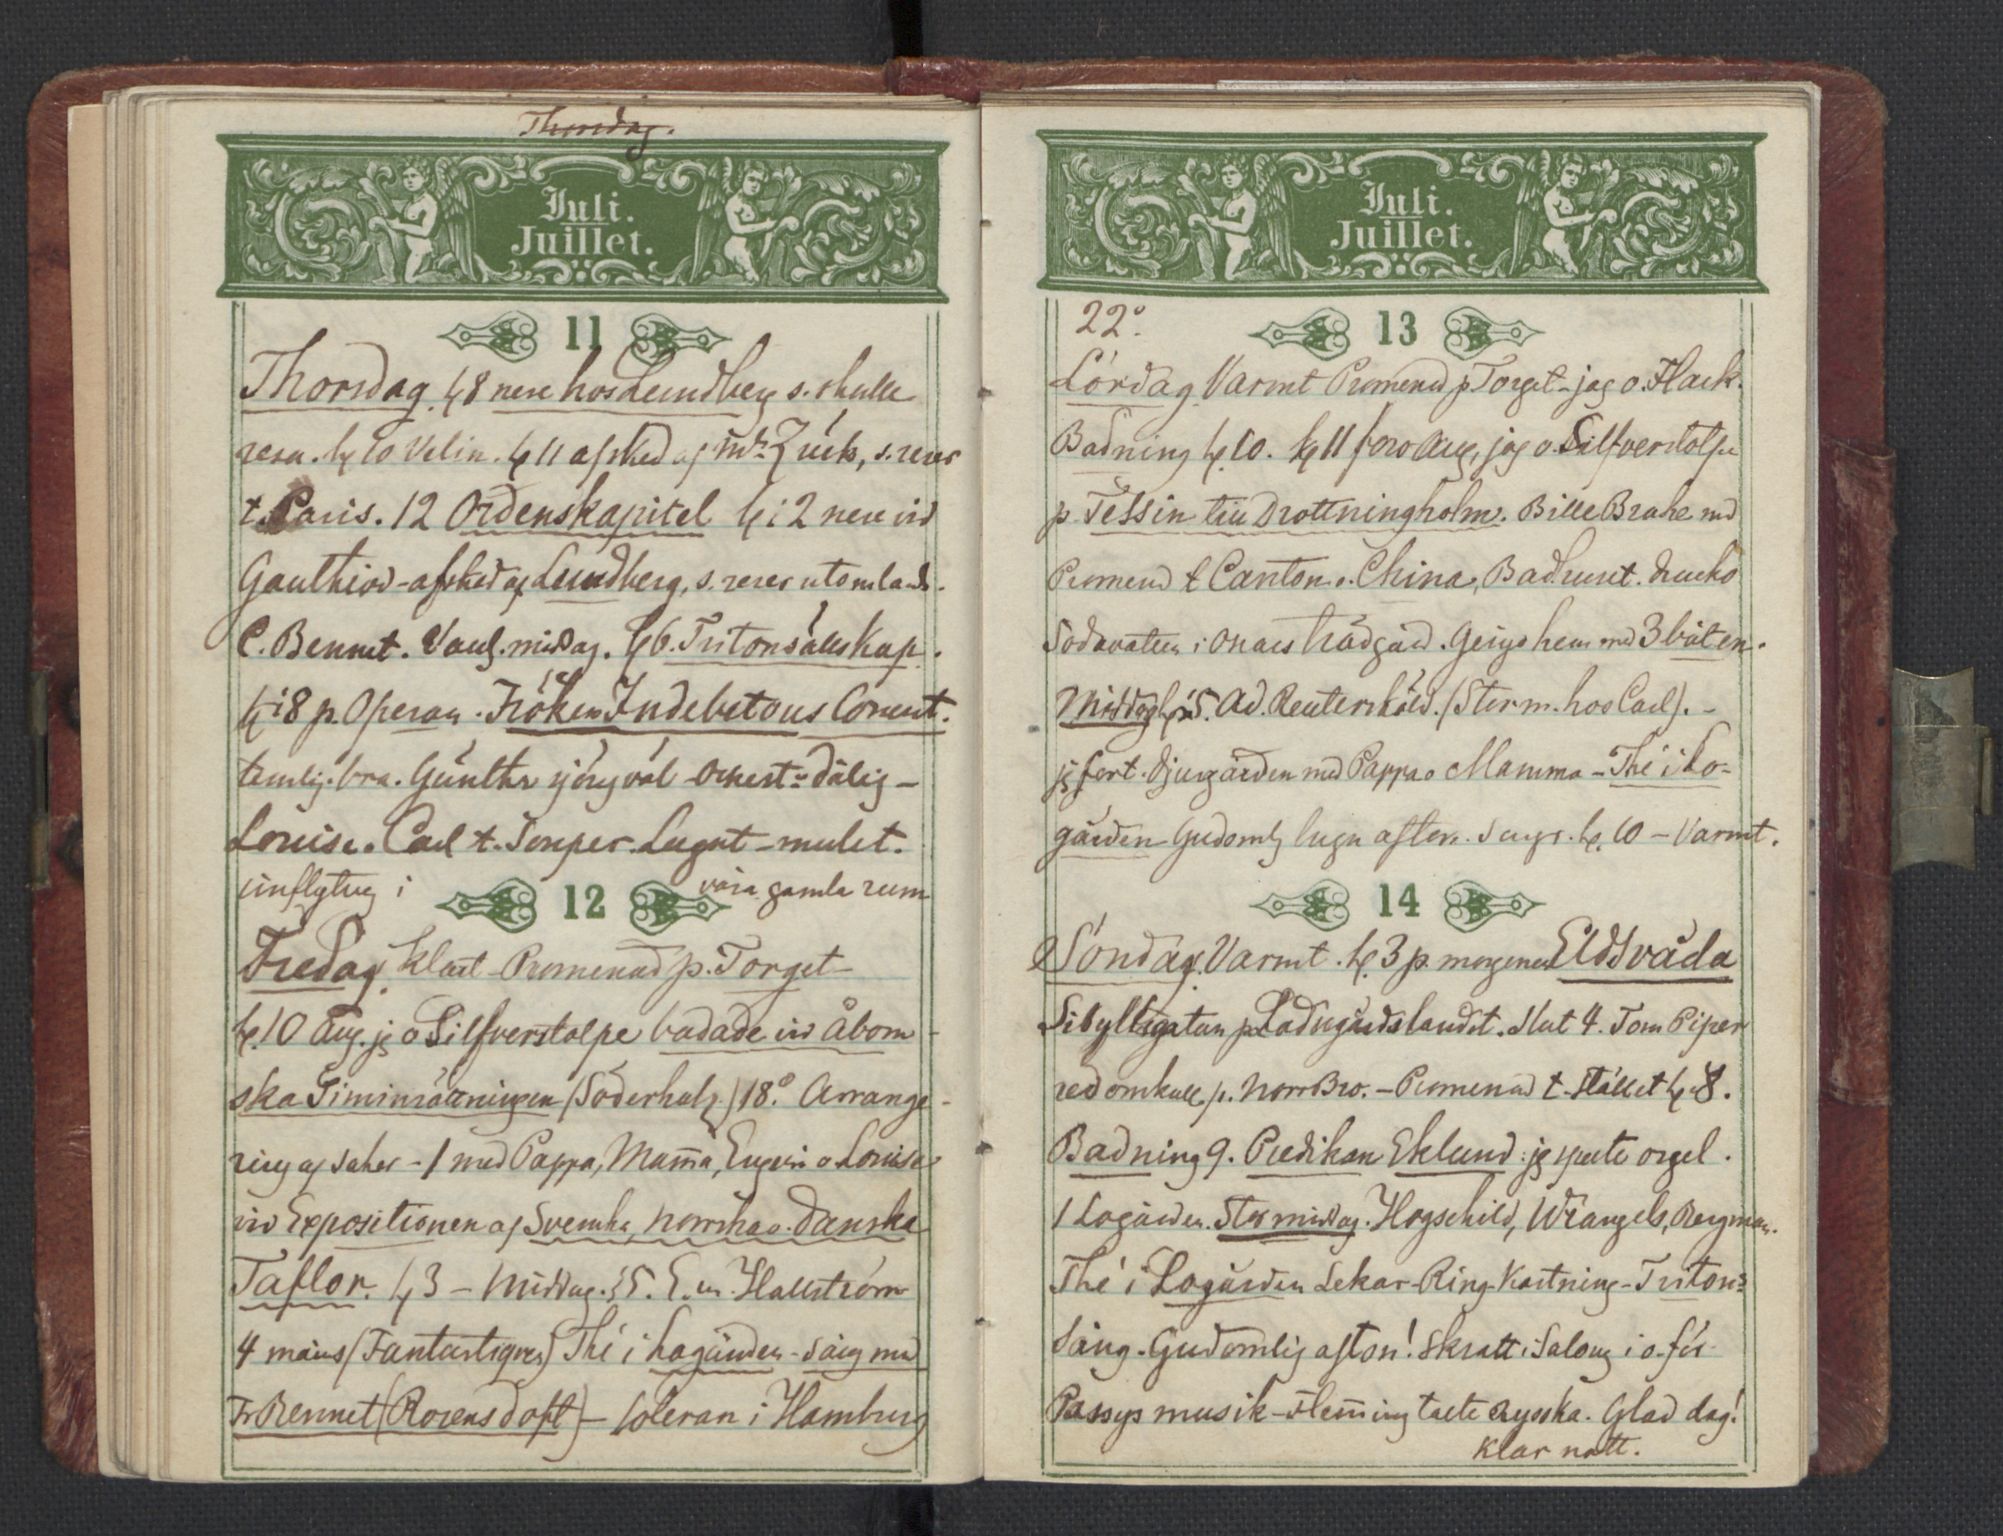 Thorsdag.
Juli.
Juillet.
11
Thorsdag. kl 8 nere hos Lundberg s. skulle
resa. kl 10 Velin. kl 11 afsked af Mr Zück, s. reser
t. Paris. 12 Ordenskapitel kl ½ 2 nere vid
Gauthiod - afsked af Lundberg, s. reser utomlands.
C. Bennet. Vanl. middag. kl 6. Tritonsällskap.
kl ½ 8 p. Operan. Fröken Indebetous Consert.
temlig. bra. Günther sjöng väl Orkestn dålig -
Louise o. Carl t. Souper. Lugnt - mulet.
inflyttng i våra gamla rum
12
Fredag. klart - Promenad p. Torget -
kl. 10 Aug. jg o Silfverstolpe badade vid Åbom-
ska Siminrättningen (Söderhelg.) 18.° Arrange-
ring af saker - 1 med Pappa, Mamma, Eugen o Louise
vid Expositionen af Svenska, norrska o. danska
Taflor. kl 3 - Middag. ½ 5. E. m. Hallström
4 mains (Fantastiques) Thé i Logården - Sång med
Fr Bennet (Rosensdoft) - Coleran i Hamburg
Juli.
Juillet.
13
22°.
Lördag. Varmt Promenad p Torget - jag o. Hack.
Badning kl. 10. kl 11 foro Aug, jag o. Silfverstolpe
p. Tessin till Drottningholm. Bille Brahe med
Promenad t Canton o. China, Badhuset. drucko
Sodavatten i Onars trädgård. Gingo hem med 3 båten.
Middag kl ½ 5. Ad. Reutersköld. (Stor m. hos Carl). -
jg fort. Djurgården med Pappa o Mamma - Thé i Lo-
gården Gudomlg lugn afton. Sängs. kl. 10 - Varmt.
14
Söndag. Varmt. kl. 3 p. morgonen Eldsvåda
Sibyllegatan på Ladugårdslandet. Slut 4. Tom Piper
red omkull p. Norrbro. - Promenad t. Stallet kl 8.
Badning 9. Predikan Eklund: jg spelte orgel.
1 Logården. Stor middag. Hogschild, Wrangels, Bergman.
Thé i Logården Lekar - Ring - Kastning - Triton-
Sång. Gudomlig afton! Skratt i Salong i o. för
Passys musik - Flemming talte Ryska. Glad dag!
Klar natt.